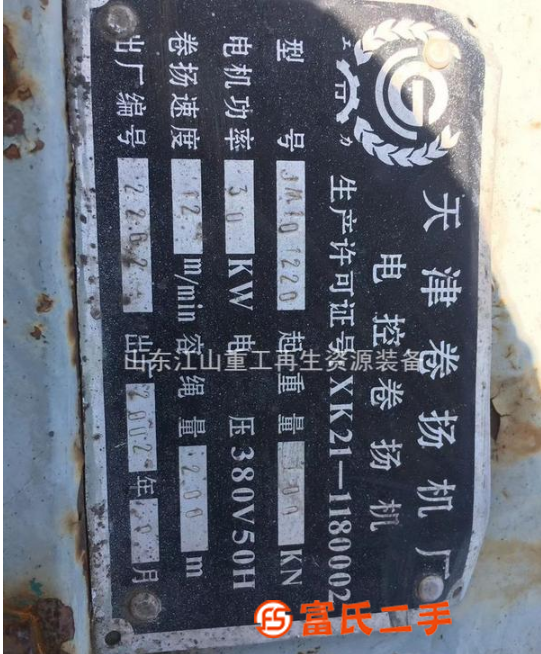 天津卷扬机厂
电控卷扬机
工 力
生产许可证号XK21-1180002
型号 JM10 1220 起重量 100 KN
电机功率 30 KW 电压 380V50H
卷扬速度 12 m/min 容绳量 200 m
出厂编号 2262 出 2002年 月
山东江山重工再生资源装备
富氏二手